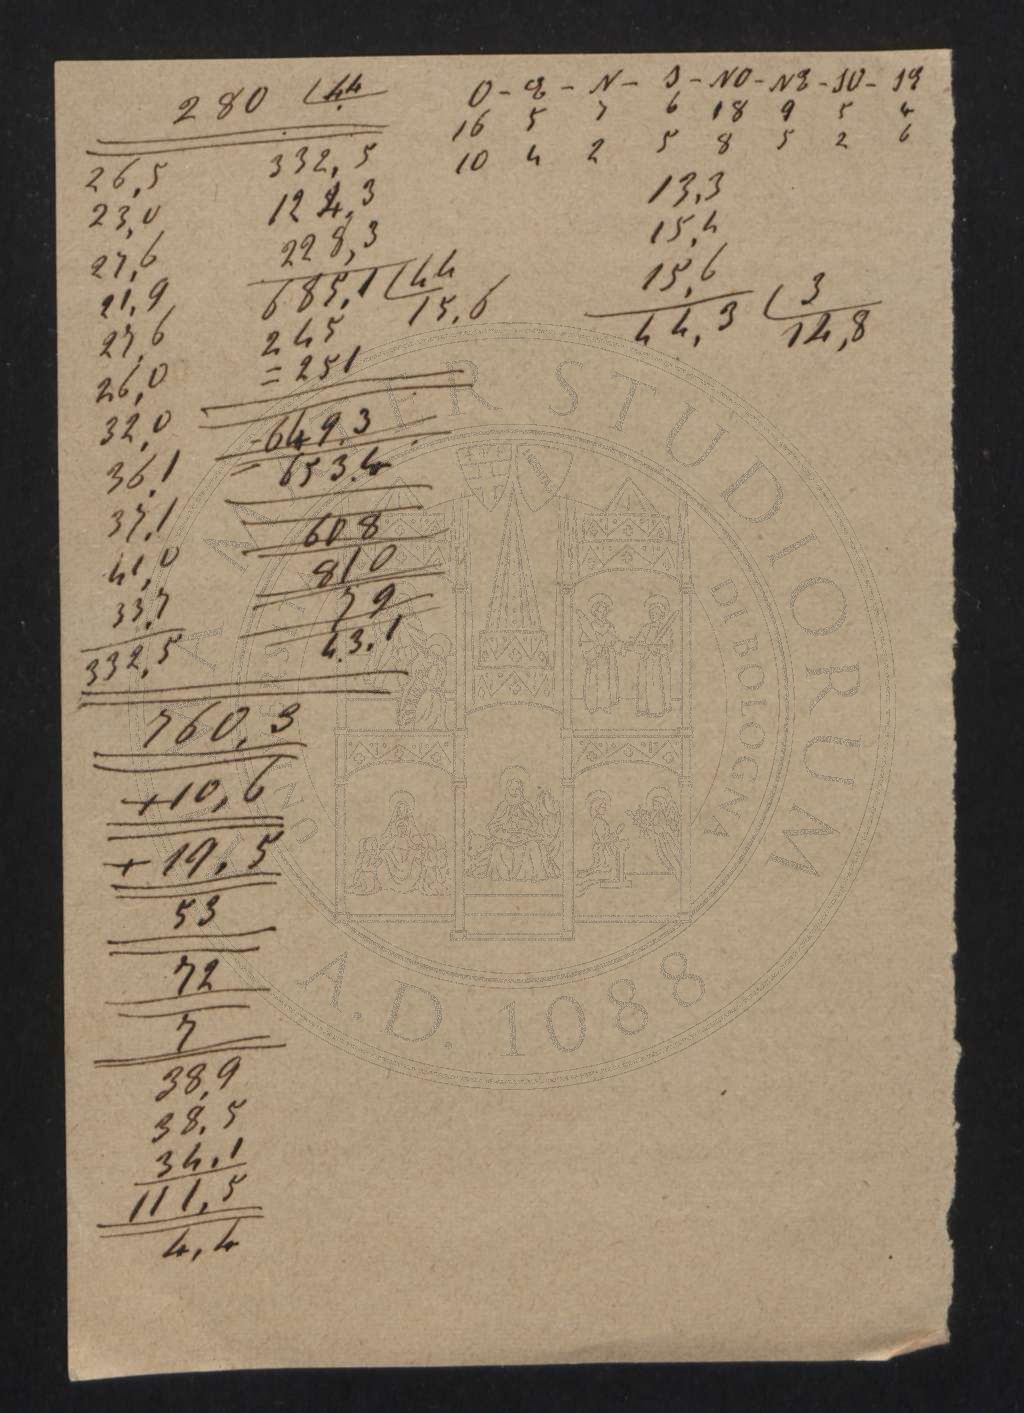 280 44
26,5
23,0
27,6
21,9
27,6
26,0
32,0
36,1
37,1
41,0
33,7
332,5
332,5
124,3
228,3
685,1 44
245 15,6
= 251
- 649.3
= 653.4
608
810
79
43.1
760,3
+10,6
+19,5
53
72
7
38,9
38,5
34,1
111,5
4,4
O - E - N - S - NO - NE - SO - SE
16 5 7 6 18 9 5 4
10 4 2 5 8 5 2 6
13,3
15,4
15,6
44,3 3
14,8
ALMA MATER STUDIORUM
A.D. 1088
DI BOLOGNA